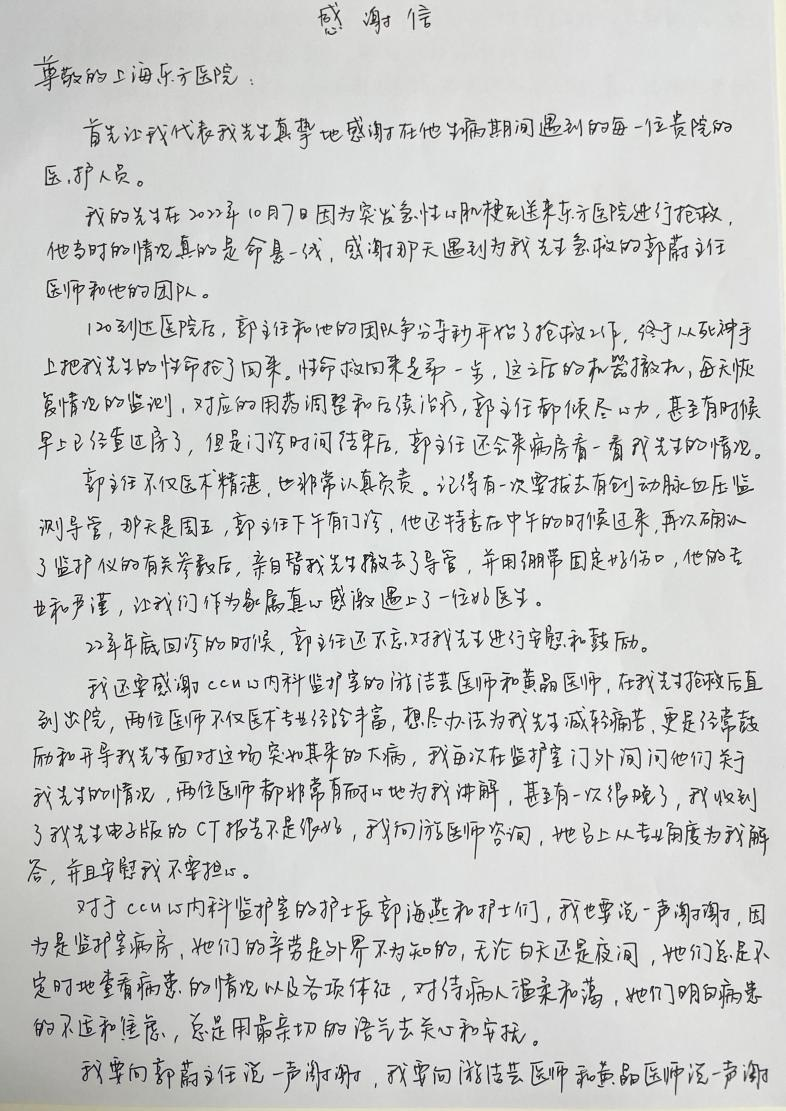 感谢信
尊敬的上海东方医院：
首先让我代表我先生真挚地感谢在他生病期间遇到的每一位贵院的
医护人员。
我的先生在2022年10月7日因为突发急性心肌梗死送来东方医院进行抢救，
他当时的情况真的是命悬一线，感谢那天遇到为我先生急救的郭蔚主任
医师和他的团队。
120到达医院后，郭主任和他的团队争分夺秒开始了抢救工作，终于从死神手
上把我先生的性命抢了回来。性命救回来是第一步，这之后的机器撤机，每天恢
复情况的监测，对应的用药调整和后续治疗，郭主任都倾尽心力，甚至有时候
早上已经查过房了，但是门诊时间结束后，郭主任还会来病房看一看我先生的情况。
郭主任不仅医术精湛，也非常认真负责。记得有一次要拔去有创动脉血压监
测导管，那天是周五，郭主任下午有门诊，他还特意在中午的时候过来，再次确认
了监护仪的有关参数后，亲自替我先生撤去了导管，并用绷带固定好伤口，他的专
业和严谨，让我们作为家属真心感激遇上了一位好医生。
22年年底回诊的时候，郭主任还不忘对我先生进行安慰和鼓励。
我还要感谢ccu心内科监护室的游洁芸医师和黄晶医师，在我先生抢救后直
到出院，两位医师不仅医术专业经验丰富，想尽办法为我先生减轻痛苦，更是经常鼓
励和开导我先生面对这场突如其来的大病，我每次在监护室门外间问他们关于
我先生的情况，两位医师都非常有耐心地为我讲解，甚至有一次很晚了，我收到
了我先生电子版的CT报告不是很好，我向游医师咨询，她马上从专业角度为我解
答，并且安慰我不要担心。
对于ccu心内科监护室的护士长郭海燕和护士们，我也要说一声谢谢，因
为是监护室病房，她们的辛劳是外界不为知的，无论白天还是夜间，她们总是不
定时地查看病患的情况以及各项体征，对待病人温柔和蔼，她们明白病患
的不适和焦虑，总是用最亲切的语气去关心和安抚。
我要向郭蔚主任说一声谢谢，我要向游洁芸医师和黄晶医师说一声谢